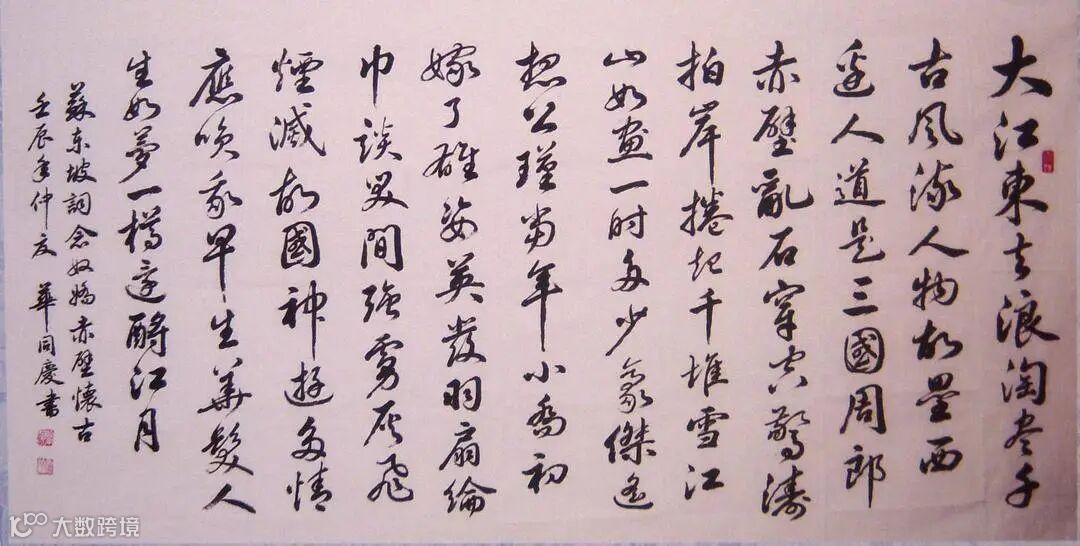 大江東去浪淘盡千
古風流人物故壘西
邊人道是三國周郎
赤壁亂石穿空驚濤
拍岸捲起千堆雪江
山如畫一时多少豪傑遙
想公瑾當年小喬初
嫁了雄姿英發羽扇綸
巾談笑間強虜灰飛
煙滅故國神遊多情
應笑我早生華髮人
生如夢一樽還酹江月
蘇东坡詞念奴嬌赤壁懷古
壬辰年仲夏 華同慶書
大数跨境